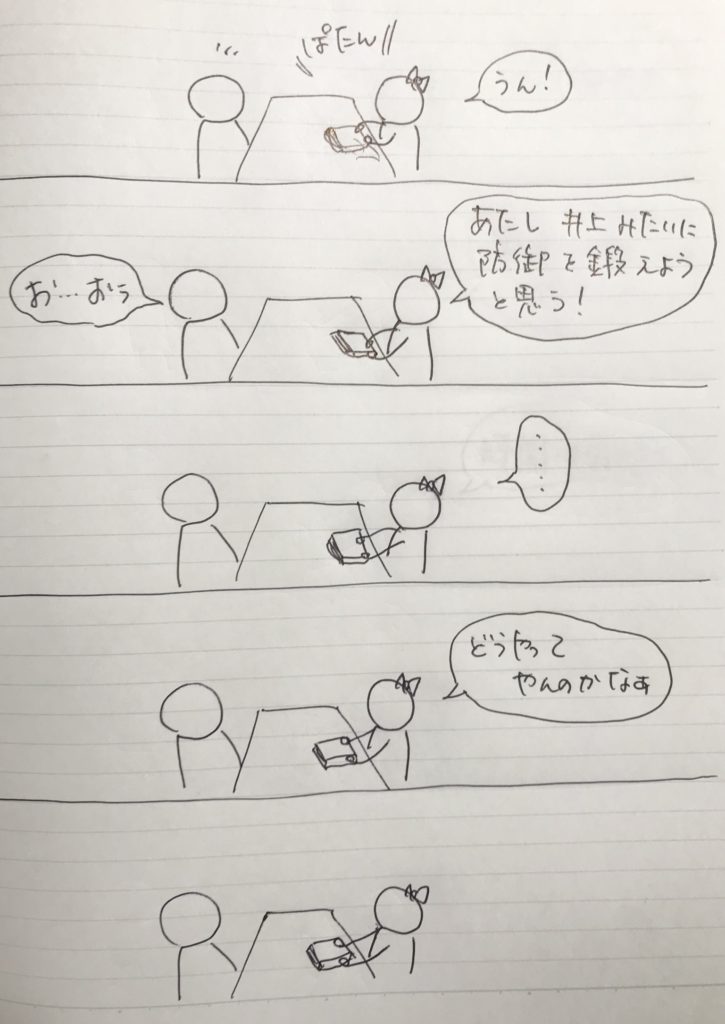 ぱたん
うん!
あたし 井上 みたいに
防御を鍛えよう
と思う!
お…おう
.....
どうやって
やんのかなぁ